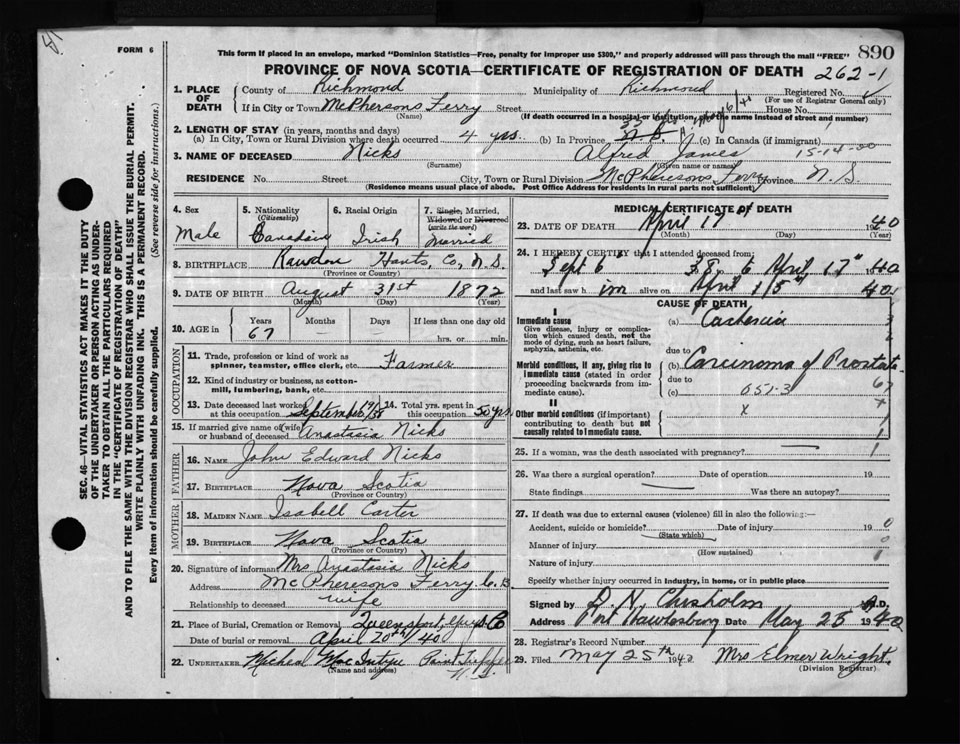 FORM 6
This form if placed in an envelope, marked "Dominion Statistics—Free, penalty for improper use $300," and properly addressed will pass through the mail "FREE" 890
PROVINCE OF NOVA SCOTIA—CERTIFICATE OF REGISTRATION OF DEATH 262-1
1. PLACE OF DEATH County of Richmond Municipality of Richmond Registered No.
(For use of Registrar General only)
If in City or Town McPhersons Ferry Street House No.
(Name) (If death occurred in a hospital or institution, give the name instead of street and number)
2. LENGTH OF STAY (in years, months and days)
(a) In City, Town or Rural Division where death occurred 4 yrs. (b) In Province (c) In Canada (if immigrant)
3. NAME OF DECEASED Nicks Alfred James 15-14-20
(Surname) (Given name or names)
RESIDENCE No. Street City, Town or Rural Division McPheresons Ferry Province N. S.
(Residence means usual place of abode. Post Office Address for residents in rural parts not sufficient)
SEC. 46—VITAL STATISTICS ACT MAKES IT THE DUTY
OF THE UNDERTAKER OR PERSON ACTING AS UNDER-
TAKER TO OBTAIN ALL THE PARTICULARS REQUIRED
IN THE "CERTIFICATE OF REGISTRATION OF DEATH"
AND TO FILE THE SAME WITH THE DIVISION REGISTRAR WHO SHALL ISSUE THE BURIAL PERMIT.
WRITE PLAINLY WITH UNFADING INK. THIS IS A PERMANENT RECORD.
Every item of information should be carefully supplied. (See reverse side for instructions.)
4. Sex Male
5. Nationality (Citizenship) Canadian
6. Racial Origin Irish
7. Single, Married, Widowed or Divorced (write the word) Married
8. BIRTHPLACE Rawdon Hants, Co, N. S.
(Province or Country)
9. DATE OF BIRTH August 31st 1872
(Month) (Day) (Year)
10. AGE in Years Months Days If less than one day old
67 hrs. or min.
OCCUPATION
11. Trade, profession or kind of work as spinner, teamster, office clerk, etc. Farmer
12. Kind of industry or business, as cotton-mill, lumbering, bank, etc.
13. Date deceased last worked at this occupation September 1938 14. Total yrs. spent in this occupation 50 yrs.
15. If married give name of wife or husband of deceased Anastasia Nicks
FATHER
16. NAME John Edward Nicks
17. BIRTHPLACE Nova Scotia
(Province or Country)
MOTHER
18. MAIDEN NAME Isabell Carter
19. BIRTHPLACE Nova Scotia
(Province or Country)
20. Signature of informant Mrs Anastasia Nicks
Address McPheresons Ferry C. B
Relationship to deceased wife
21. Place of Burial, Cremation or Removal Queensport, Guys Co
Date of burial or removal April 20th/40
22. UNDERTAKER Micheal MacIntyre Point Tupper
(Name and address) N. S.
MEDICAL CERTIFICATE OF DEATH
23. DATE OF DEATH April 17th 1940
(Month) (Day) (Year)
24. I HEREBY CERTIFY that I attended deceased from:
Sept 6 38 to April 17th 1940
and last saw him alive on April 15th 40
CAUSE OF DEATH
I
Immediate cause (a) Cachexia
Give disease, injury or complication which caused death, not the mode of dying, such as heart failure, asphyxia, asthenia, etc.
due to
Morbid conditions, if any, giving rise to immediate cause (stated in order proceeding backwards from immediate cause). (b) Carcinoma of Prostate
due to
(c) 051-3
II
Other morbid conditions (if important) contributing to death but not causally related to immediate cause. x
25. If a woman, was the death associated with pregnancy?
26. Was there a surgical operation? Date of operation 19
State findings Was there an autopsy?
27. If death was due to external causes (violence) fill in also the following:—
Accident, suicide or homicide? Date of injury 19
(State which)
Manner of injury
(How sustained)
Nature of injury
Specify whether injury occurred in industry, in home, or in public place
Signed by D. N. Chisholm M.D.
Address Port Hawkesbury Date May 25 1940
28. Registrar's Record Number
29. Filed May 25th 1940 Mrs Elmer Wright
(Division Registrar)